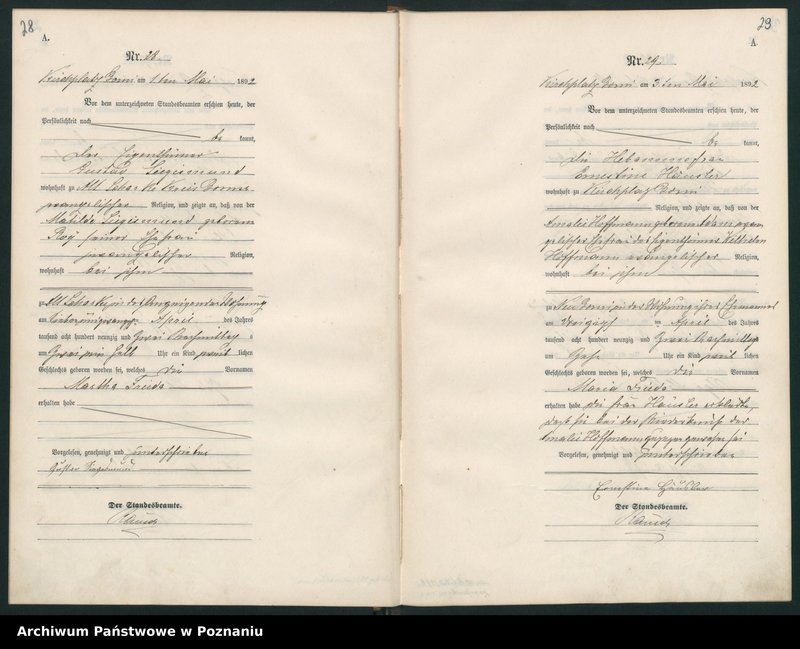 28
A.
Nr. 28.
Kirchplatz Borui am 1ten Mai 1892
Vor dem unterzeichneten Standesbeamten erschien heute, der
Persönlichkeit nach
be kannt,
der Eigenthümer
Gustav Siegismund
wohnhaft zu Alt
evangelischer Religion, und zeigte an, daß von der
Mathilde Siegismund geborene
seiner Ehefrau
evangelischer Religion,
wohnhaft bei ihm
zu Alt in der Wohnung
am April des Jahres
tausend acht hundert neunzig und Zwei Nachmittags
um Zwei ein halb Uhr ein Kind weib lichen
Geschlechts geboren worden sei, welches die Vornamen
Martha Frieda
erhalten habe
Vorgelesen, genehmigt und unterschrieben
Gustav Siegismund
Der Standesbeamte.
29
A
Nr. 29.
Kirchplatz Borui am 3ten Mai 1892
Vor dem unterzeichneten Standesbeamten erschien heute, der
Persönlichkeit nach
be kannt,
die Hebammenfrau
Ernestine Häusler
wohnhaft zu Kirchplatz Borui
Religion, und zeigte an, daß von der
Amalie Hoffmann geborene evan
gelischer Ehefrau des Eigenthümers
Hoffmann evangelischer Religion,
wohnhaft bei ihm
zu Neu Borui in der Wohnung ihres Ehemannes
am dreißigsten April des Jahres
tausend acht hundert neunzig und Zwei Nachmittags
um Uhr ein Kind weib lichen
Geschlechts geboren worden sei, welches die Vornamen
Maria Frieda
erhalten habe die Frau Häusler erklärte,
daß sie bei der Niederkunft der
Amalie Hoffmann zugegen gewesen sei
Vorgelesen, genehmigt und unterschrieben
Ernestine Häusler
Der Standesbeamte.
Archiwum Państwowe w Poznaniu